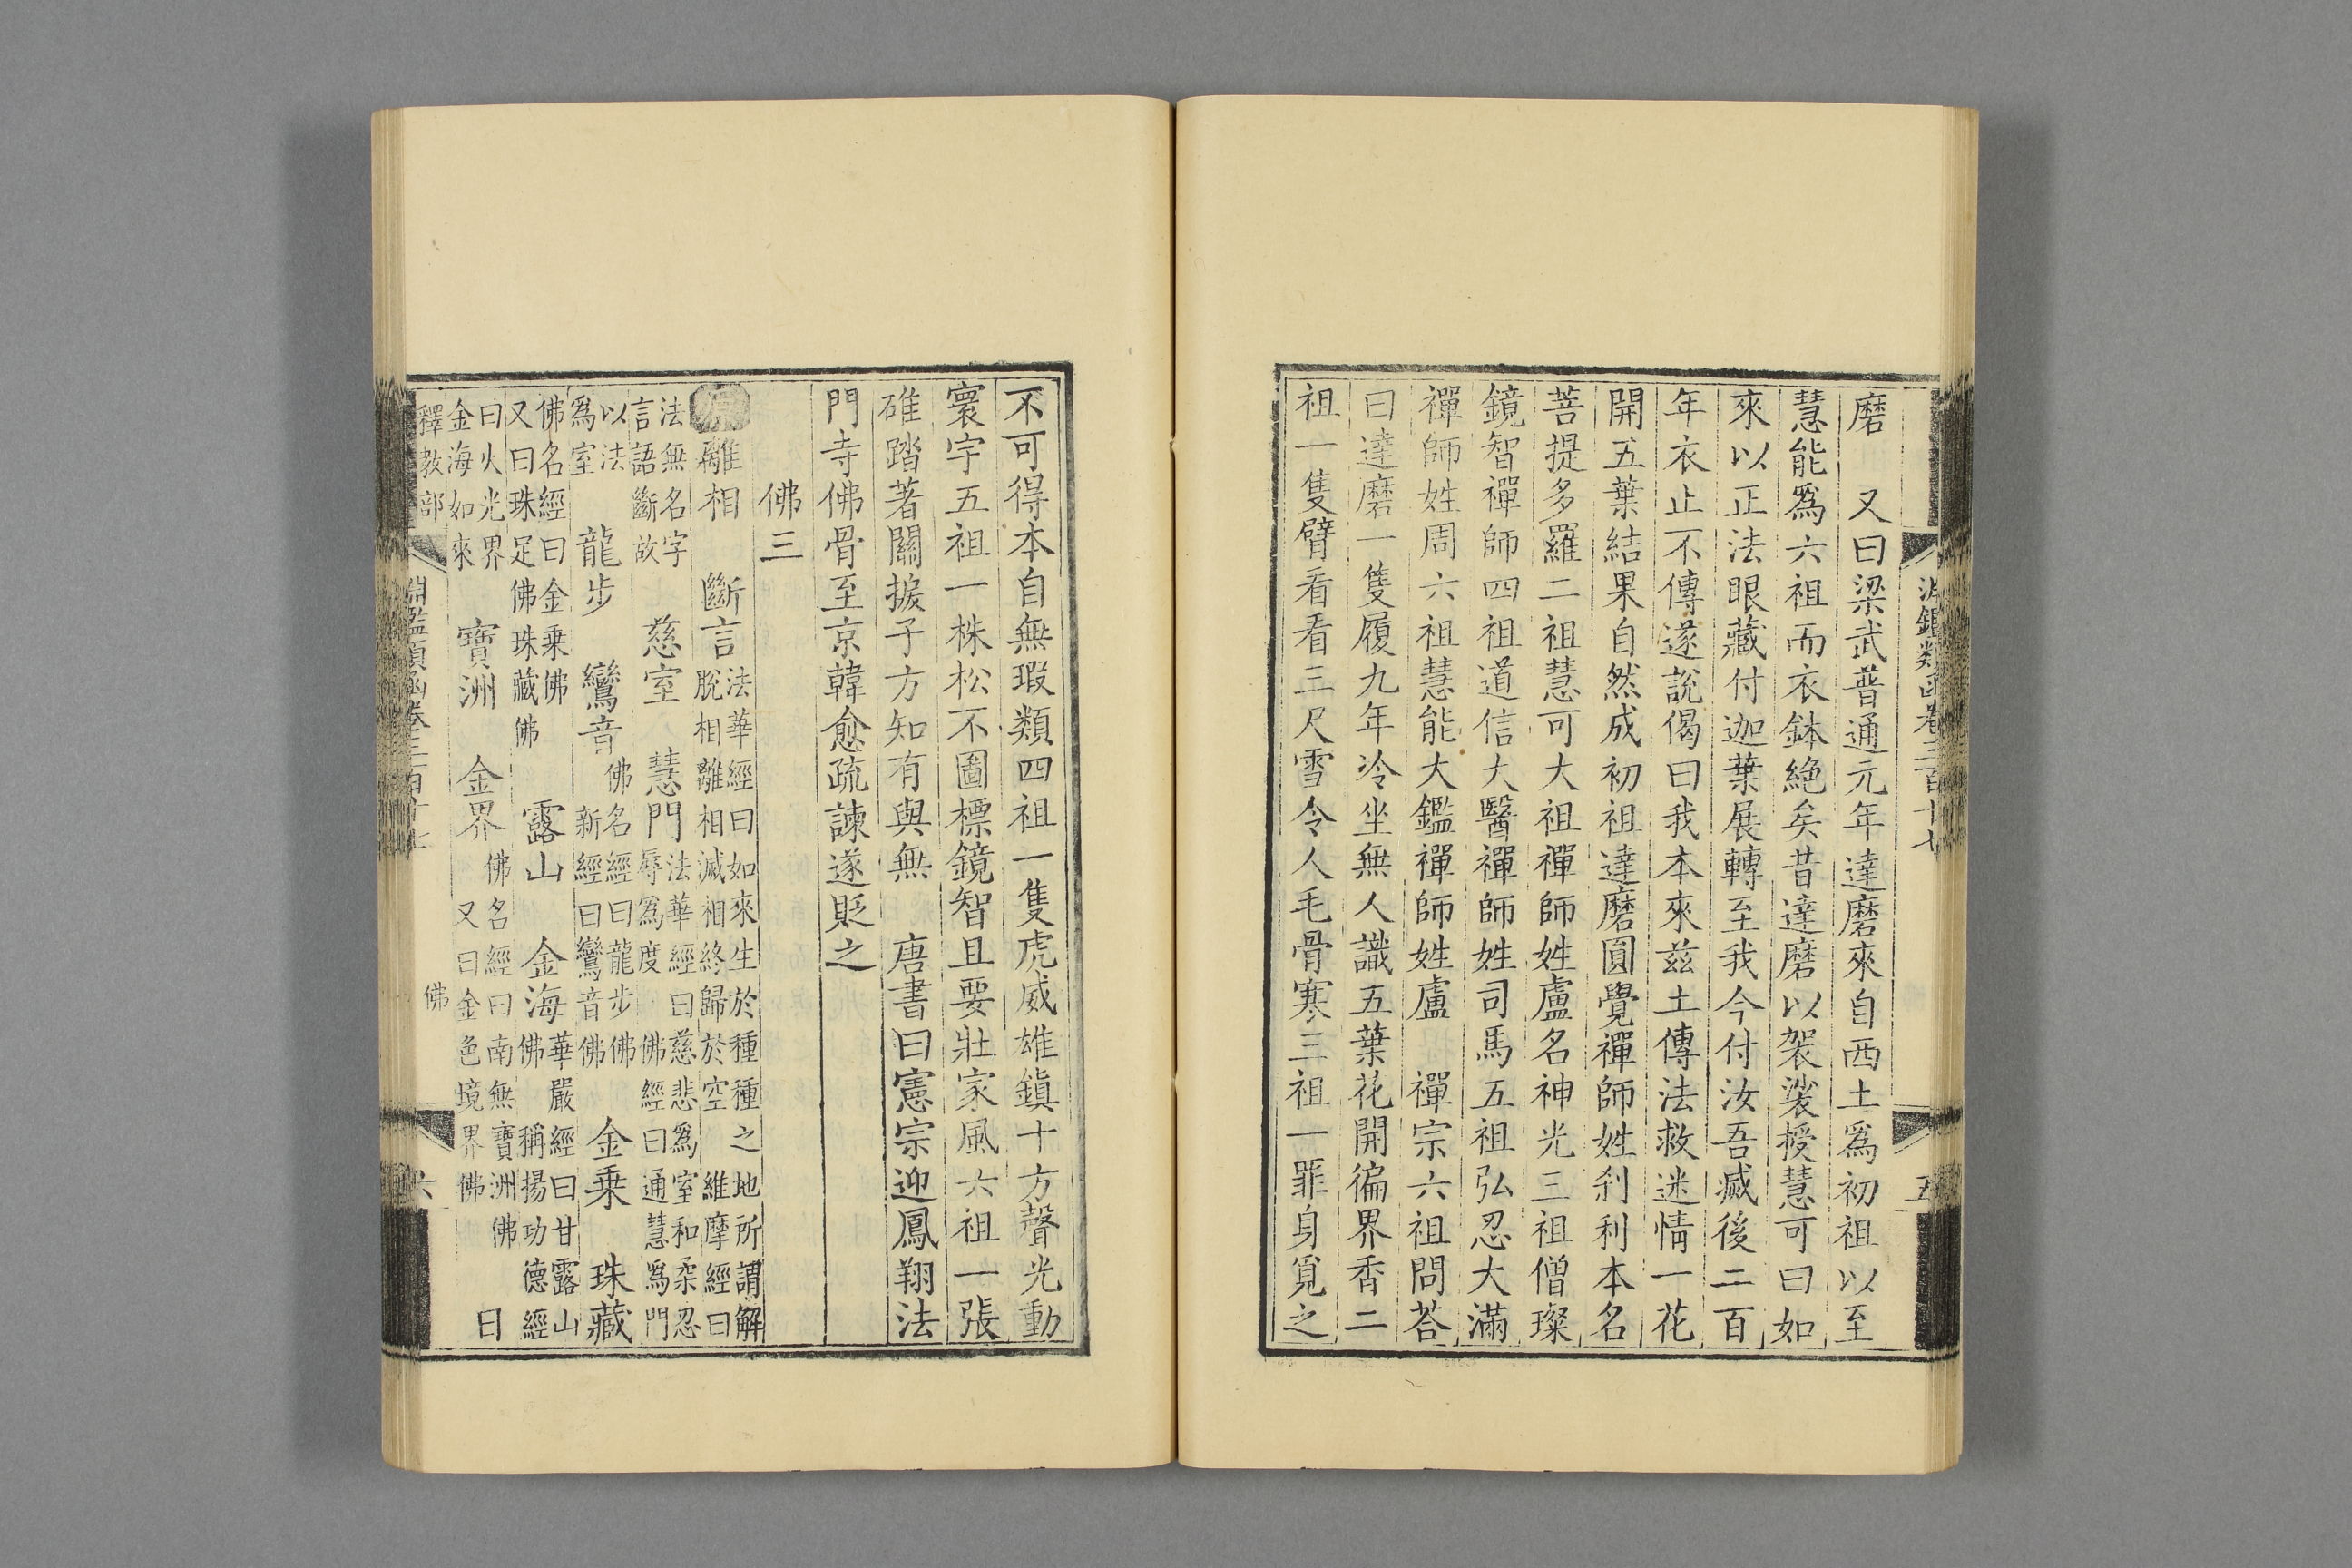 淵鑑類函卷三百十七
五
磨　又曰梁武普通元年達磨來自西土爲初祖以至
慧能爲六祖而衣鉢絶矣昔達磨以袈裟授慧可曰如
來以正法眼藏付迦葉展轉至我今付汝吾滅後二百
年衣止不傳遂說偈曰我本來兹土傳法救迷情一花
開五葉結果自然成初祖達磨圓覺禪師姓刹利本名
菩提多羅二祖慧可大祖禪師姓盧名神光三祖僧璨
鏡智禪師四祖道信大醫禪師姓司馬五祖弘忍大滿
禪師姓周六祖慧能大鑑禪師姓盧　禪宗六祖問荅
曰達磨一隻履九年冷坐無人識五葉花開徧界香二
祖一隻臂看看三尺雪令人毛骨寒三祖一罪身覓之
不可得本自無瑕類四祖一隻虎威雄鎮十方聲光動
寰宇五祖一株松不圖標鏡智且要壯家風六祖一張
碓踏著關捩子方知有與無　唐書曰憲宗迎鳳翔法
門寺佛骨至京韓愈疏諫遂貶之
佛三
離相　斷言法華經曰如來生於種種之地所謂解
脫相離相滅相終歸於空　維摩經曰
法無名字
言語斷故　慈室　慧門法華經曰慈悲爲室和柔忍
辱爲度　佛經曰通慧爲門
以法
爲室　龍步　鸞音佛名經曰龍步佛
新經曰鸞音佛　金乗　珠藏
佛名經曰金乗佛
又曰珠足佛珠藏佛　露山　金海華嚴經曰甘露山
佛　稱揚功德經
曰火光界
金海如來　寶洲　金界佛名經曰南無寶洲佛
又曰金色境界佛　日
釋教部
淵鑑類函卷三百十七
佛
六